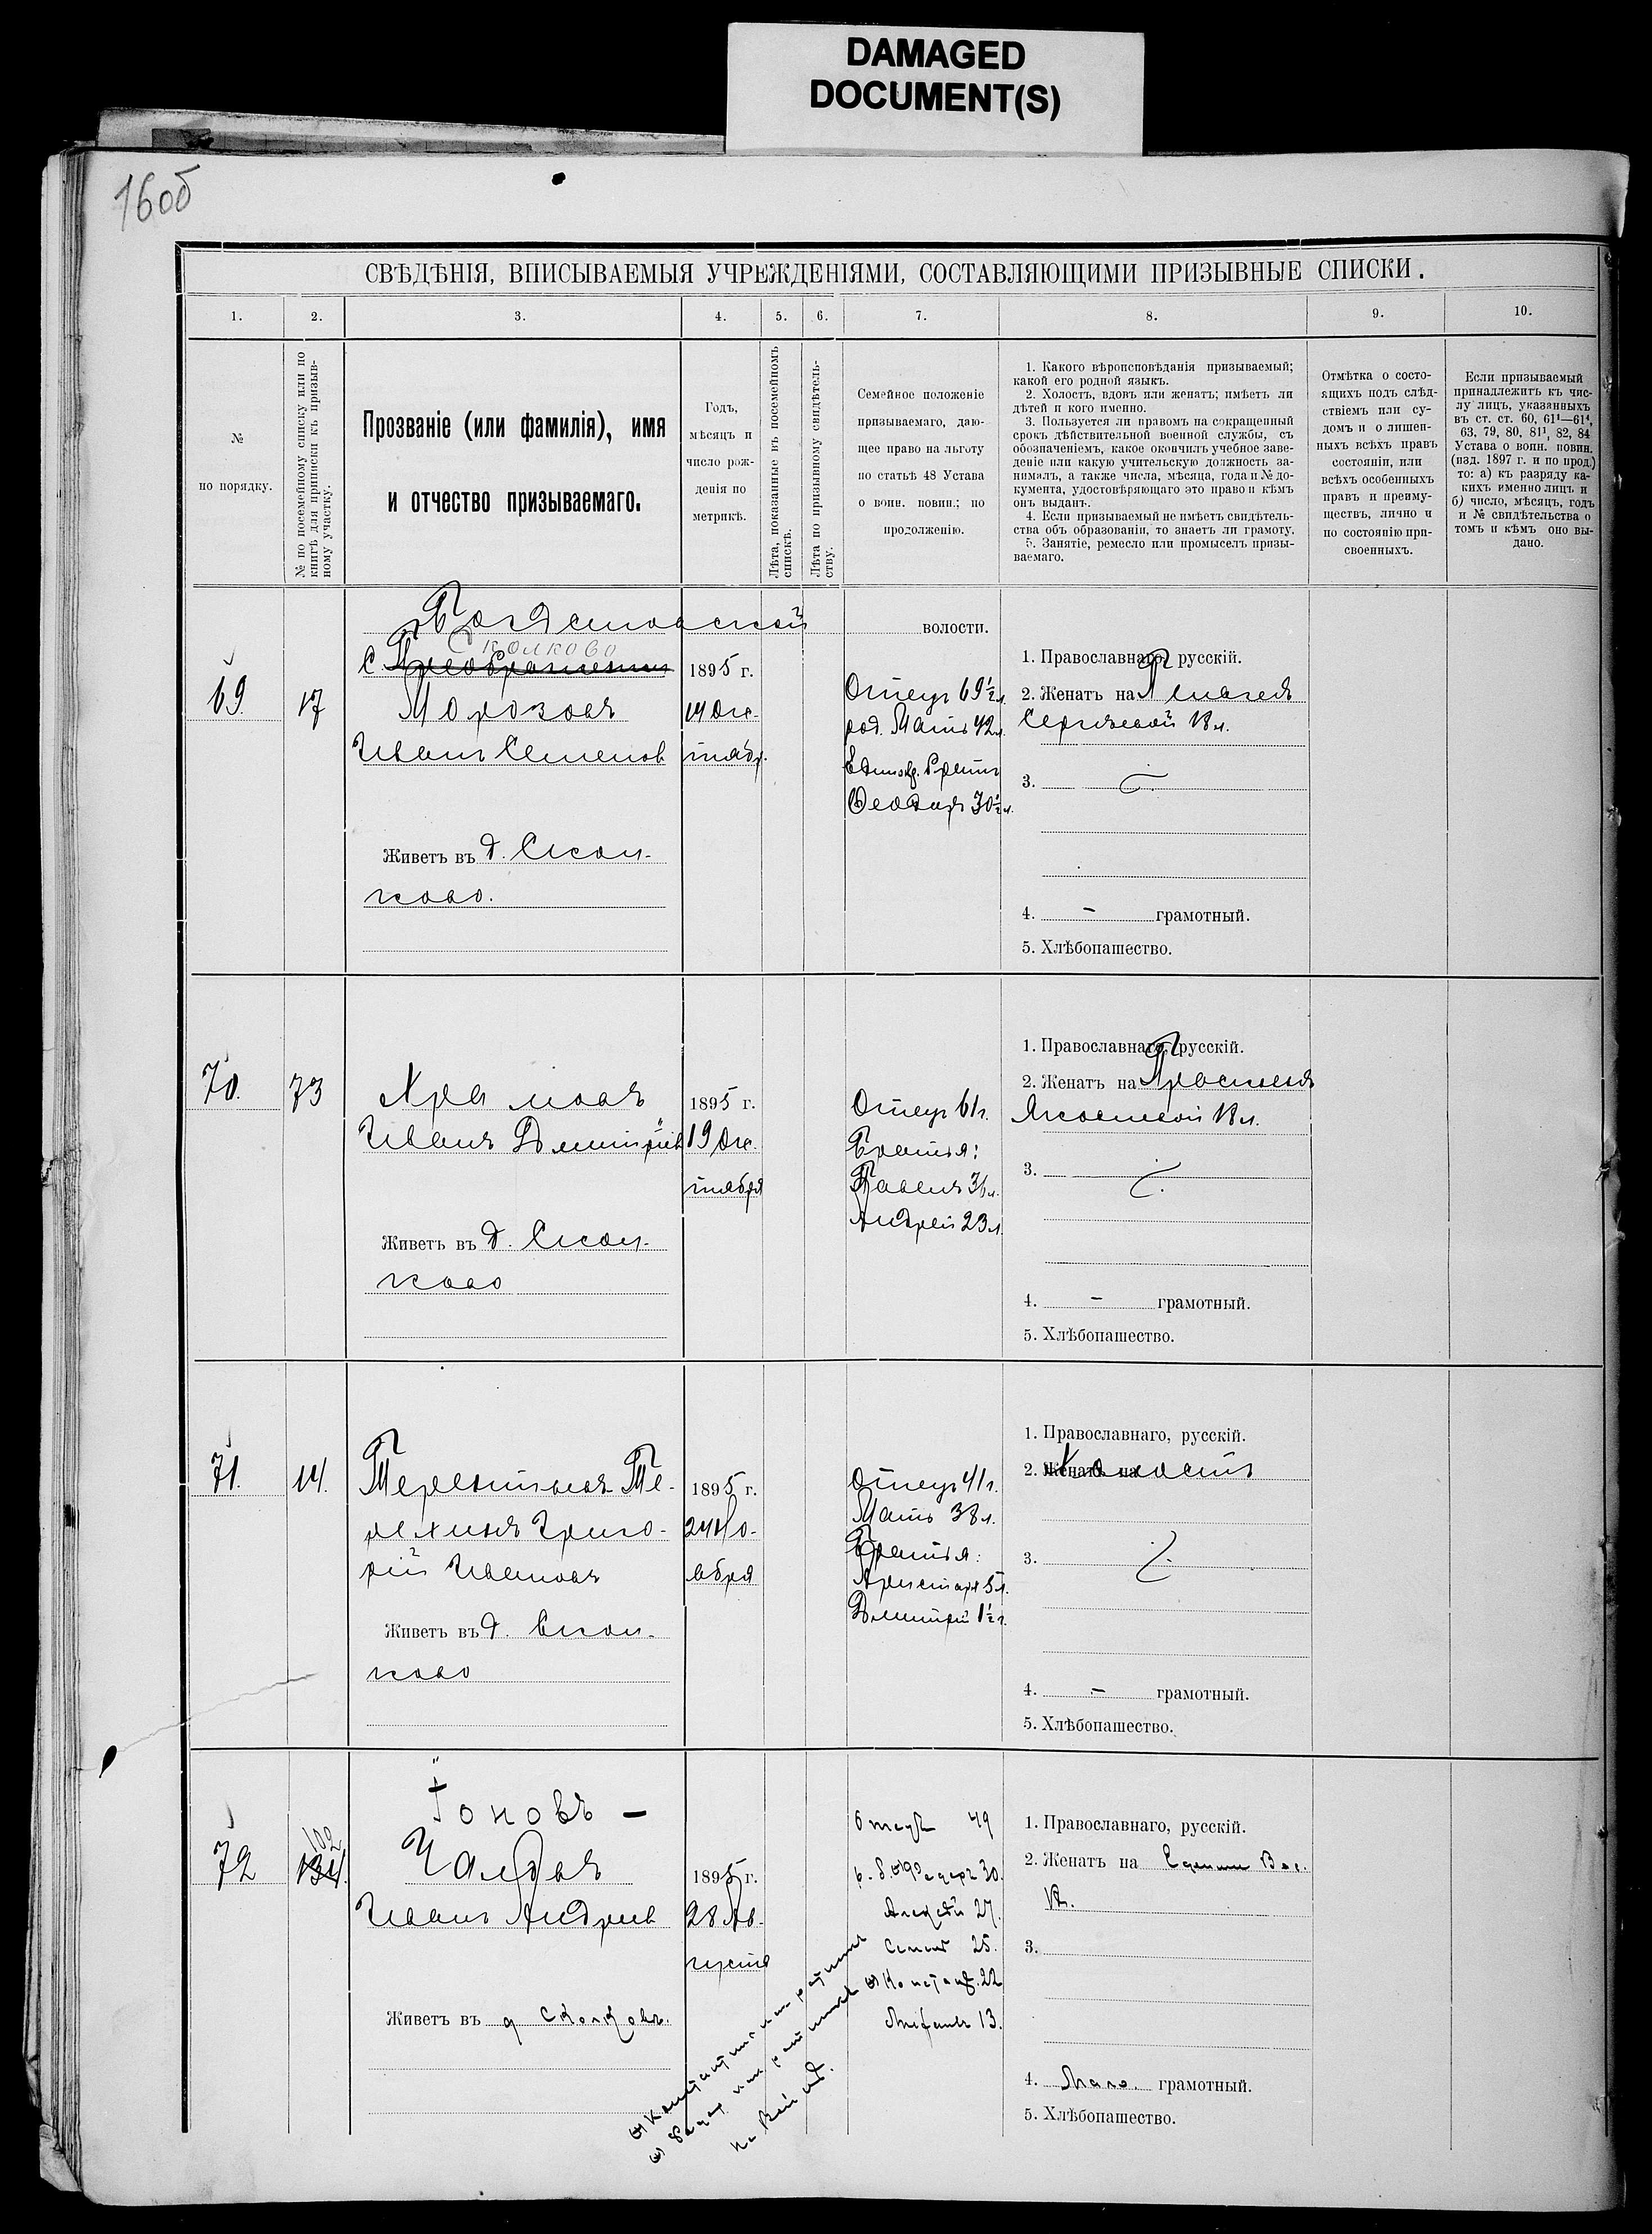 DAMAGED
DOCUMENT(S)
16об
СВѢДѢНІЯ, ВПИСЫВАЕМЫЯ УЧРЕЖДЕНІЯМИ, СОСТАВЛЯЮЩИМИ ПРИЗЫВНЫЕ СПИСКИ.
1. 2. 3. 4. 5. 6. 7. 8. 9. 10.
№
по порядку.
№ по посемейному списку или по
книгѣ для приписки къ призыв-
ному участку.
Прозваніе (или фамилія), имя
и отчество призываемаго.
Годъ,
мѣсяцъ и
число рож-
денія по
метрикѣ.
Лѣта, показанные въ посемейномъ
спискѣ.
Лѣта по призывному свидѣтель-
ству.
Семейное положеніе
призываемаго, даю-
щее право на льготу
по статьѣ 48 Устава
о воин. повин.; по
продолженію.
1. Какого вѣроисповѣданія призываемый;
какой его родной языкъ.
2. Холостъ, вдовъ или женатъ; имѣетъ ли
дѣтей и кого именно.
3. Пользуется ли правомъ на сокращенный
срокъ дѣйствительной военной службы, съ
обозначеніемъ, какое окончилъ учебное заве-
деніе или какую учительскую должность за-
нималъ, а также числа, мѣсяца, года и № до-
кумента, удостовѣряющаго это право и кѣмъ
онъ выданъ.
4. Если призываемый не имѣетъ свидѣтель-
ства объ образованіи, то знаетъ ли грамоту.
5. Занятіе, ремесло или промыселъ призы-
ваемаго.
Отмѣтка о состо-
ящихъ подъ слѣд-
ствіемъ или су-
домъ и о лишен-
ныхъ всѣхъ правъ
состоянія, или
всѣхъ особенныхъ
правъ и преиму-
ществъ, лично и
по состоянію при-
своенныхъ.
Если призываемый
принадлежитъ къ чис-
лу лицъ, указанныхъ
въ ст. ст. 60, 61¹—61⁴,
63, 79, 80, 81¹, 82, 84
Устава о воин. повин.
(изд. 1897 г. и по прод.)
то: а) къ разряду ка-
кихъ именно лицъ и
б) число, мѣсяцъ, годъ
и № свидѣтельства о
томъ и кѣмъ оно вы-
дано.
волости.
Сколково
с.
69. 17
Морозовъ
Иванъ Семенов
1895 г.
14 Ок-
тябр.
Отецъ 69½ л.
род. Мать 42 л.
Единокр. Братъ
Ѳеодоръ 30½ л.
1. Православнаго, русскій.
2. Женатъ на Пелагеѣ
Сергѣевой 18 л.
3.
Живетъ въ д. Скол-
ково.
4. – грамотный.
5. Хлѣбопашество.
70. 73
Храмовъ
Иванъ Дмитріев
1895 г.
19 Ок-
тября
Отецъ 61 г.
Братья:
Павелъ 36 л.
Андрей 23 л.
1. Православнаго, русскій.
2. Женатъ на
Яковлевой 18 л.
3.
Живетъ въ д. Скол-
ково
4. – грамотный.
5. Хлѣбопашество.
71. 14.
Терентьевъ Те-
рехинъ Григо-
рій Ивановъ
1895 г.
24 Но-
ября
Отецъ 41 г.
Мать 38 л.
Братья:
Аристархъ 5 л.
Дмитрій 1½ г.
1. Православнаго, русскій.
2. Женатъ на Холостъ
3.
Живетъ въ д. Скол-
ково
4. – грамотный.
5. Хлѣбопашество.
Іоновъ –
72 102
134.
Иванъ Андреев
1895 г.
28 Ав-
густа
Отецъ 49
30.
Алексѣй 27.
Семенъ 25.
Констант. 22
13.
1. Православнаго, русскій.
2. Женатъ на
3.
Живетъ въ д Сколковъ.
4. Мало грамотный.
5. Хлѣбопашество.